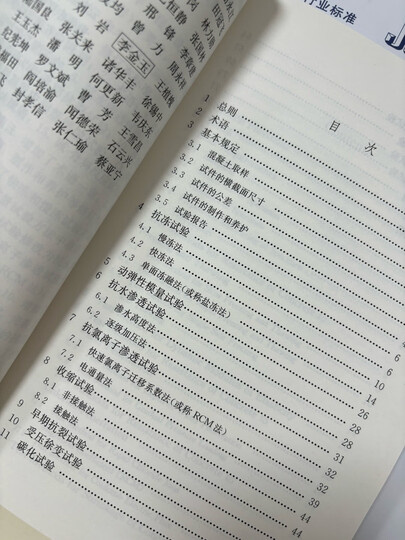 行业标准
J
恒静
林力勋
均 邢锋
刘岩 曾力 周永祥
国良 张关来 李金玉
王玉杰 潘明 诸华丰
纪宪坤 罗文斌 何更新 韦庆东
福田 阎培渝 曹芳 王雪昌
飞 封孝信 闻德荣 石云兴
张仁瑜 蔡亚宁
目 次
1 总则
2 术语
3 基本规定
3.1 混凝土取样
3.2 试件的横截面尺寸
3.3 试件的公差
3.4 试件的制作和养护 4
3.5 试验报告 4
4 抗冻试验 6
4.1 慢冻法 6
4.2 快冻法 10
4.3 单面冻融法(或称盐冻法) 14
5 动弹性模量试验 26
6 抗水渗透试验 28
6.1 渗水高度法 28
6.2 逐级加压法 31
7 抗氯离子渗透试验 32
7.1 快速氯离子迁移系数法(或称RCM法) 32
7.2 电通量法 39
8 收缩试验 44
8.1 非接触法 44
8.2 接触法
9 早期抗裂试验
10 受压徐变试验
11 碳化试验